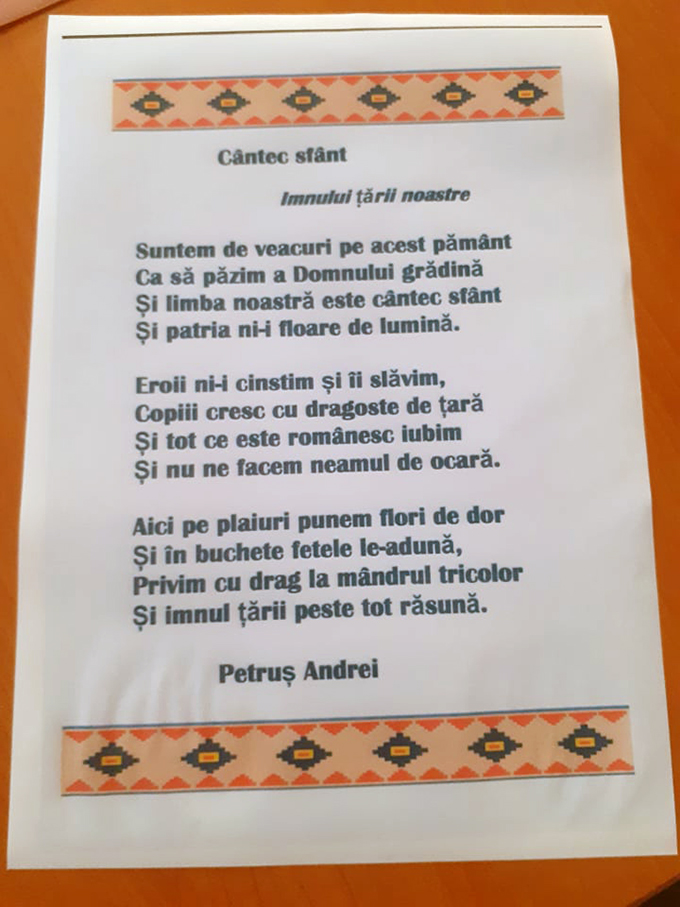 Cântec sfânt
Imnului țării noastre
Suntem de veacuri pe acest pământ
Ca să păzim a Domnului grădină
Și limba noastră este cântec sfânt
Și patria ni-i floare de lumină.
Eroii ni-i cinstim și îi slăvim,
Copiii cresc cu dragoste de țară
Și tot ce este românesc iubim
Și nu ne facem neamul de ocară.
Aici pe plaiuri punem flori de dor
Și în buchete fetele le-adună,
Privim cu drag la mândrul tricolor
Și imnul țării peste tot răsună.
Petruș Andrei